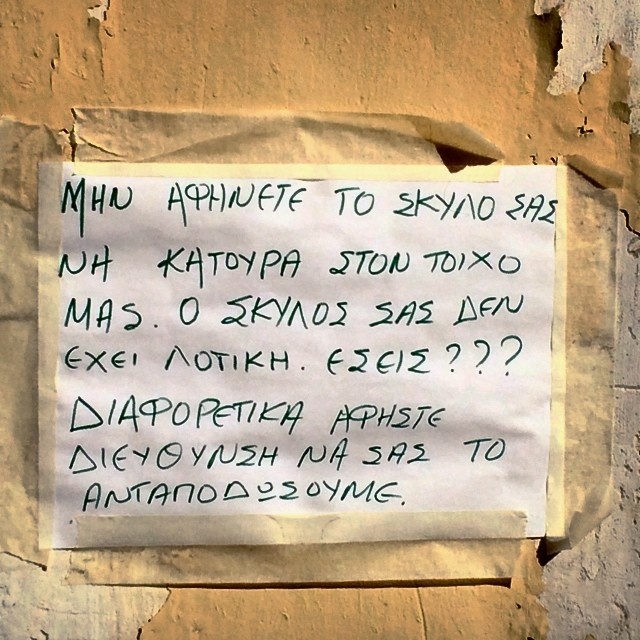 ΜΗΝ ΑΦΗΝΕΤΕ ΤΟ ΣΚΥΛΟ ΣΑΣ
ΝΗ ΚΑΤΟΥΡΑ ΣΤΟΝ ΤΟΙΧΟ
ΜΑS. Ο ΣΚΥΛΟΣ ΣΑΣ ΔΕΝ
ΕΧΕΙ ΛΟΤΙΚΗ. ΕΣΕΙΣ???
ΔΙΑΦΟΡΕΤΙΚΑ ΑΦΗΣΤΕ
ΔΙΕΥΘΥΝΣΗ ΝΑ ΣΑΣ ΤΟ
ΑΝΤΑΠΟΔΩΣΟΥΜΕ.